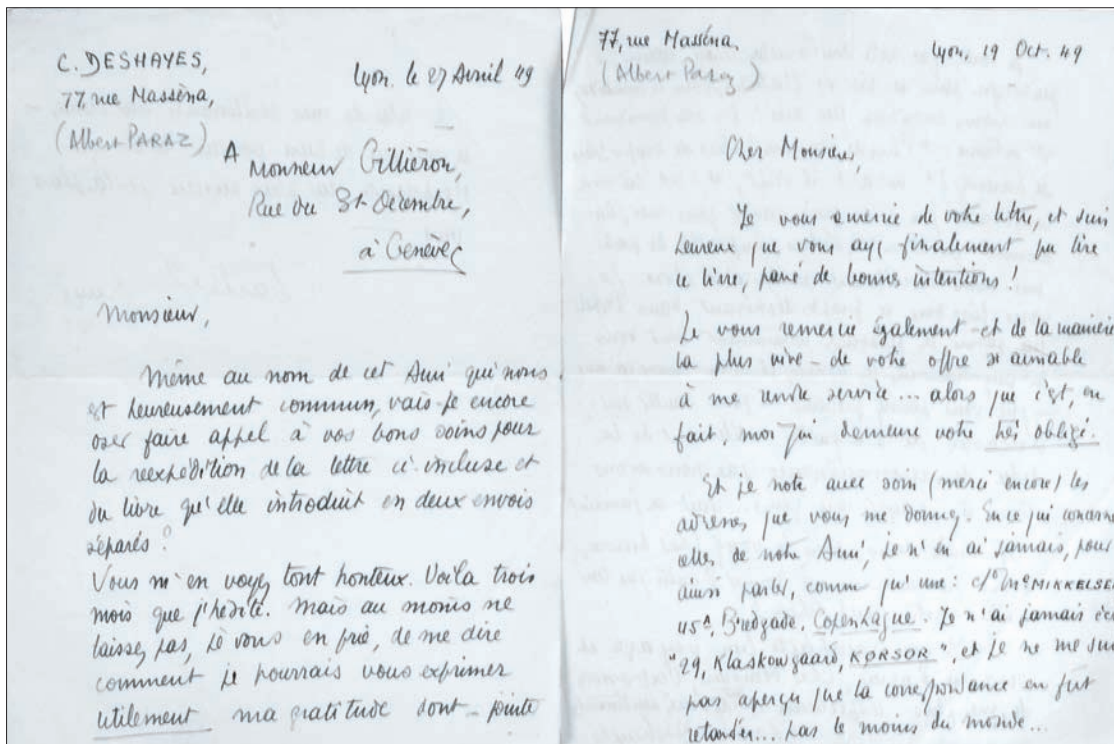 C. DESHAYES,
77 rue Masséna,
(Albert PARAZ)
Lyon. le 27 Avril 49
A
Monsieur Gilliéron,
Rue du 31 Décembre,
à Genève
Monsieur,
Même au nom de cet Ami qui nous
est heureusement commun, vais-je encore
oser faire appel à vos bons soins pour
la réexpédition de la lettre ci incluse et
du livre qu'elle introduit en deux envois
séparés ?
Vous m'en voyez tout honteux. Voilà trois
mois que j'hésite. Mais au moins ne
laissez pas, je vous en prie, de me dire
comment je pourrais vous exprimer
utilement ma gratitude dont
77, rue Masséna.
(Albert Paraz)
Lyon, 19 Oct. 49
Cher Monsieur,
Je vous remercie de votre lettre, et suis
heureux que vous ayez finalement pu lire
ce livre, pavé de bonnes intentions !
Je vous remercie également - et de la manière
la plus vive - de votre offre si aimable
à me rendre service ... alors que c'est, en
fait, moi qui demeure votre très obligé.
Et je note avec soin (merci encore) les
adresses que vous me donnez. En ce qui concerne
celles de notre Ami, je n'en ai jamais, pour
ainsi parler, connu qu'une : c/ Me MIKKELSEN
45A, Bredgade, Copenhague. Je n'ai jamais
"29, Klaskowgaard, KORSOR", et je ne me suis
pas aperçu que la correspondance en fut
retardée... pas le moins du monde...